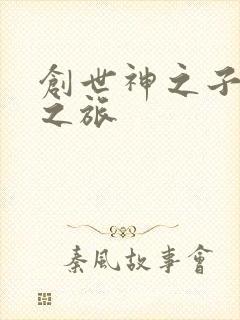 創世神之子
之旅
秦風故事會